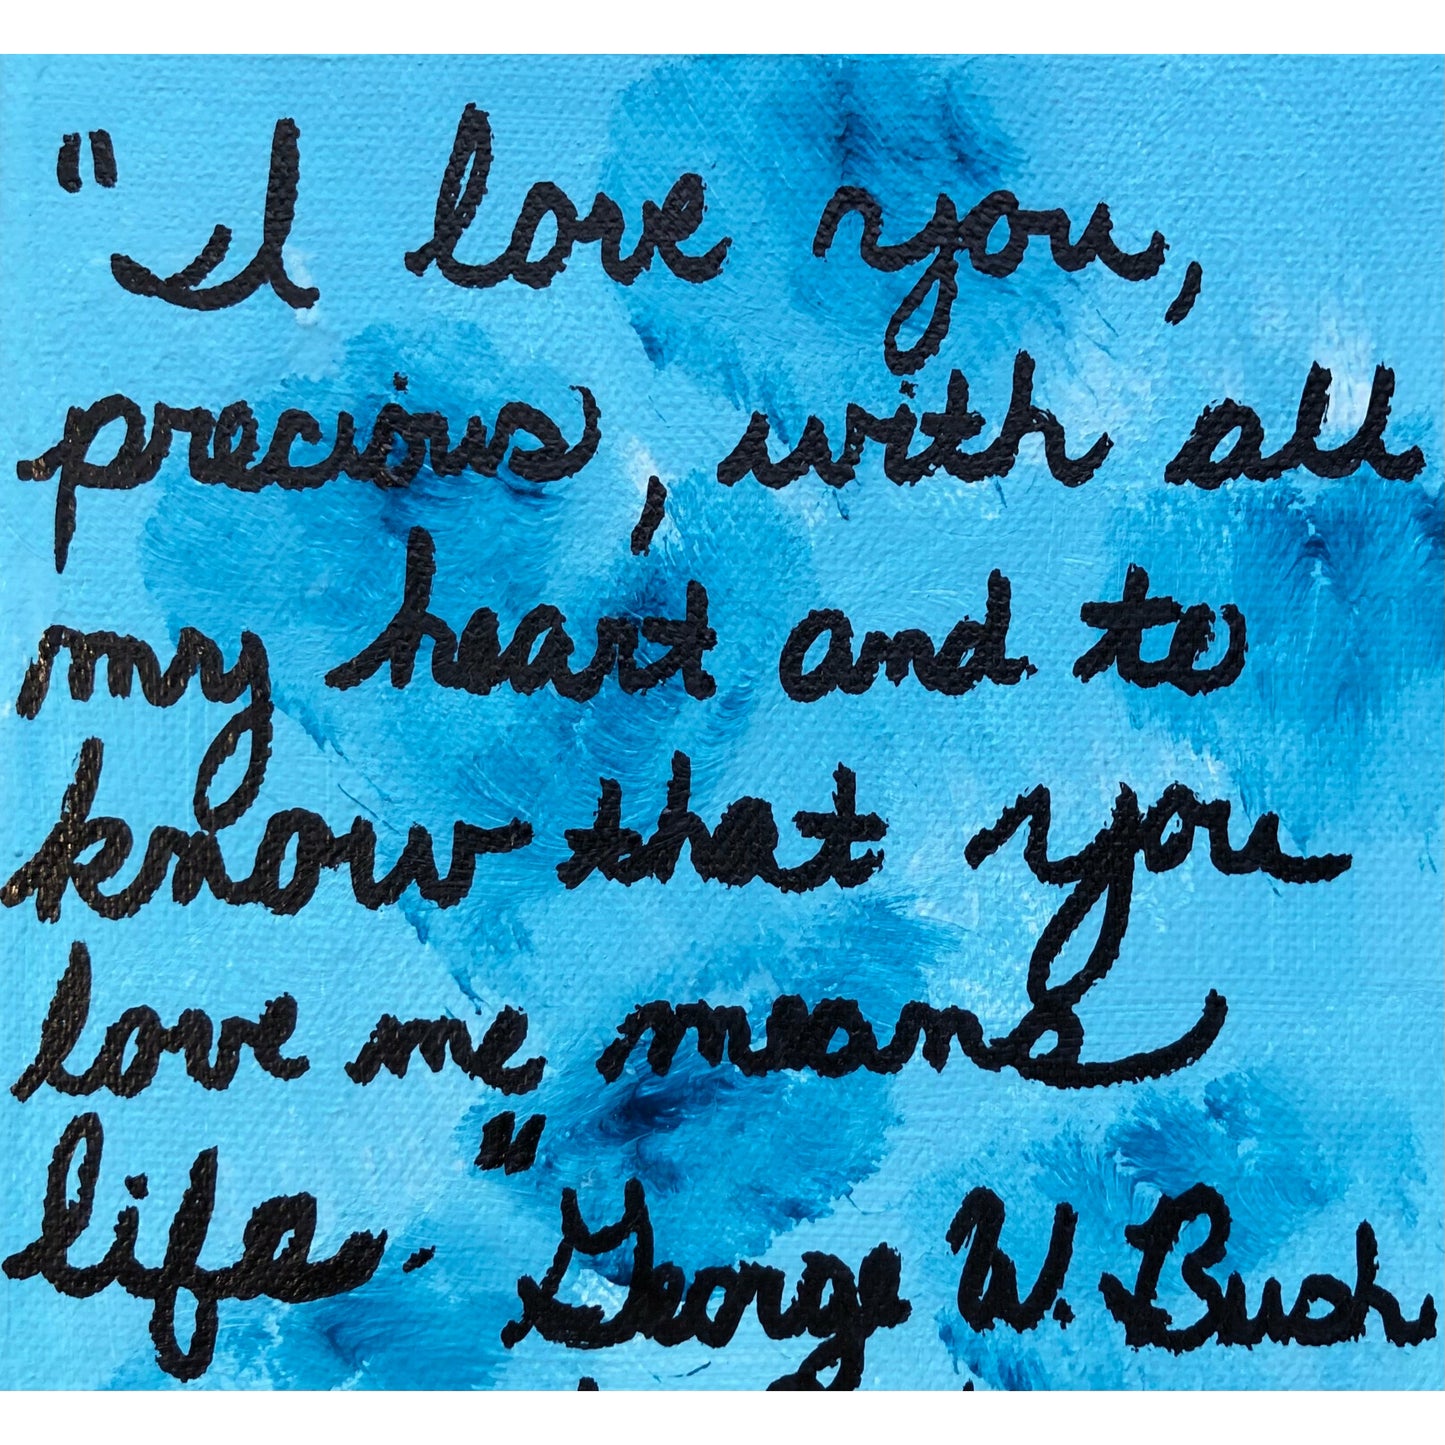 "I love you,
precious, with all
my heart and to
know that you
love me means
life." George W. Bush